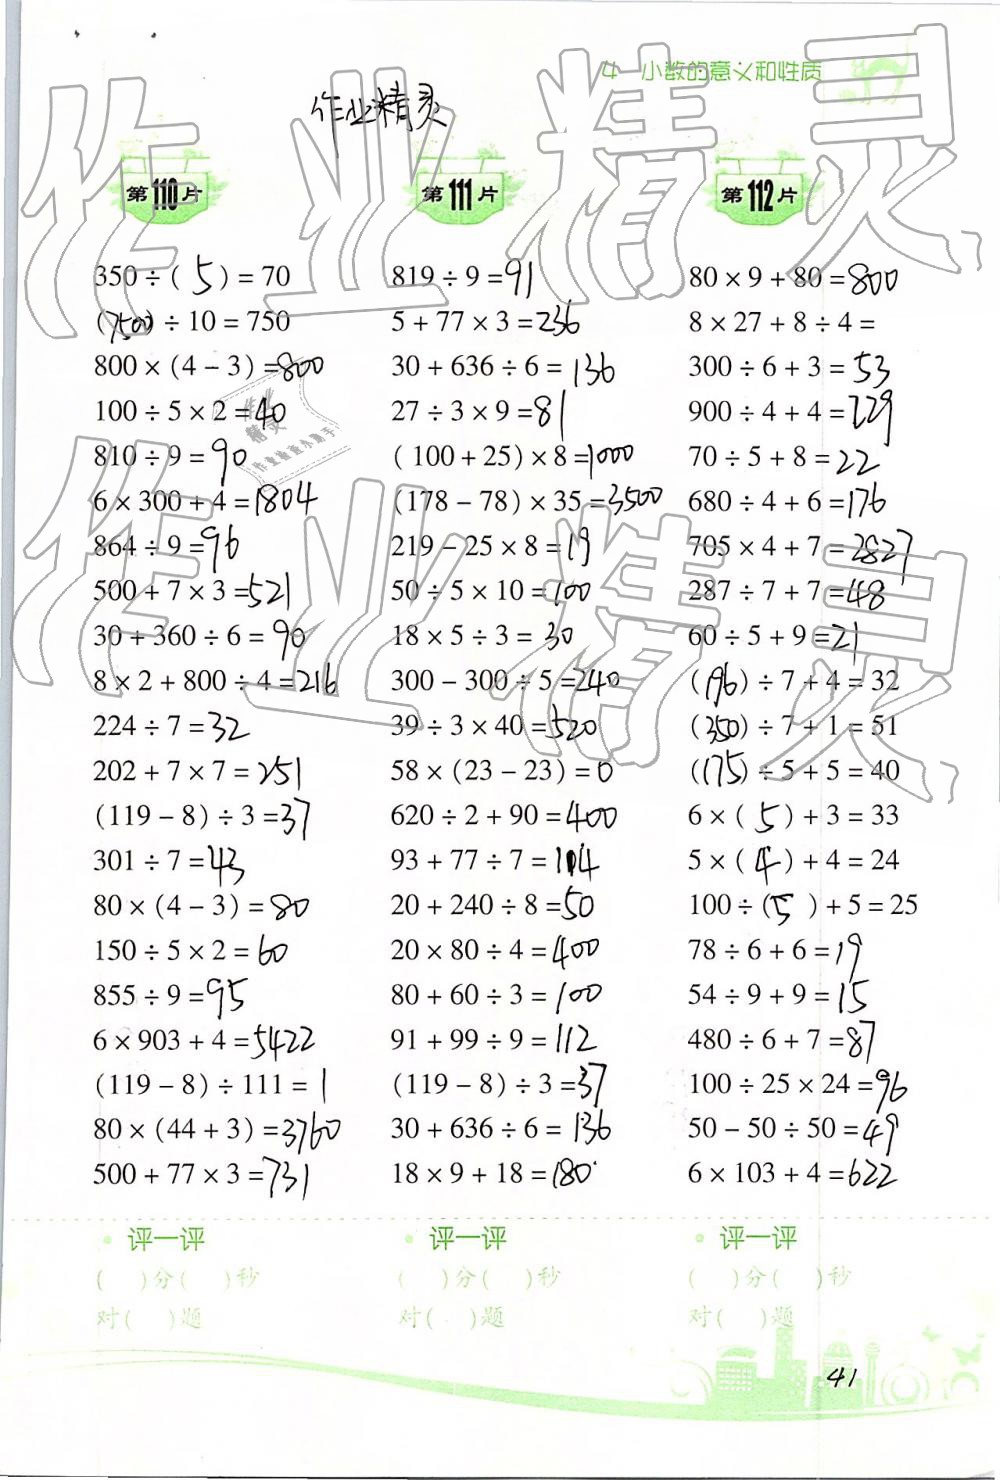 4 小数的意义和性质
作业精灵
第110片
350÷(5)=70
(7500)÷10=750
800×(4-3)=800
100÷5×2=40
810÷9=90
6×300+4=1804
864÷9=96
500+7×3=521
30+360÷6=90
8×2+800÷4=216
224÷7=32
202+7×7=251
(119-8)÷3=37
301÷7=43
80×(4-3)=80
150÷5×2=60
855÷9=95
6×903+4=5422
(119-8)÷111=1
80×(44+3)=3760
500+77×3=731
评一评
( )分( )秒
对( )题
第111片
819÷9=91
5+77×3=236
30+636÷6=136
27÷3×9=81
(100+25)×8=1000
(178-78)×35=3500
219-25×8=19
50÷5×10=100
18×5÷3=30
300-300÷5=240
39÷3×40=520
58×(23-23)=0
620÷2+90=400
93+77÷7=104
20+240÷8=50
20×80÷4=400
80+60÷3=100
91+99÷9=112
(119-8)÷3=37
30+636÷6=136
18×9+18=180
评一评
( )分( )秒
对( )题
第112片
80×9+80=800
8×27+8÷4=
300÷6+3=53
900÷4+4=229
70÷5+8=22
680÷4+6=176
705×4+7=2827
287÷7+7=48
60÷5+9=21
(196)÷7+4=32
(350)÷7+1=51
(175)÷5+5=40
6×(5)+3=33
5×(4)+4=24
100÷(5)+5=25
78÷6+6=19
54÷9+9=15
480÷6+7=87
100÷25×24=96
50-50÷50=49
6×103+4=622
评一评
( )分( )秒
对( )题
41
作业精灵
作业精灵
作业精灵